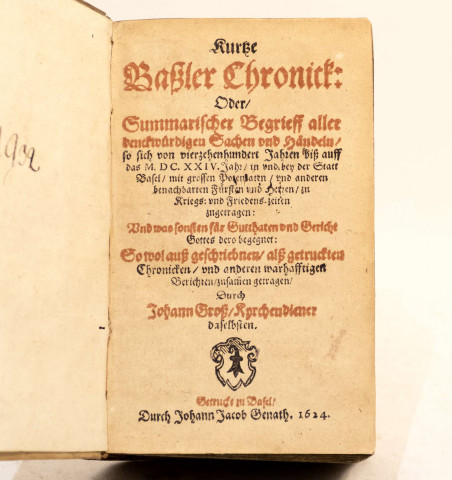 1932
Kurtze
Baßler Chronick:
Oder/
Summarischer Begrieff aller
denckwürdigen Sachen vnd Händeln/
so sich von vierzehenhundert Jahren biß auff
das M. DC. XXIV. Jahr/ in vnd bey der Statt
Basel/ mit grossen Potentaten/ vnd anderen
benachbarten Fürsten vnd Herren/ zu
Kriegs- vnd Friedens-zeiten
zugetragen:
Vnd was sonsten für Gutthaten vnd Gericht
Gottes dero begegnet:
So wol auß geschriebnen/ alß getruckten
Chronicken/ vnd anderen warhafftigen
Berichten/ zusam̄en getragen/
Durch
Johann Groß/ Kyrchendiener
daselbsten.
Getruckt zu Basel/
Durch Johann Jacob Genath. 1624.